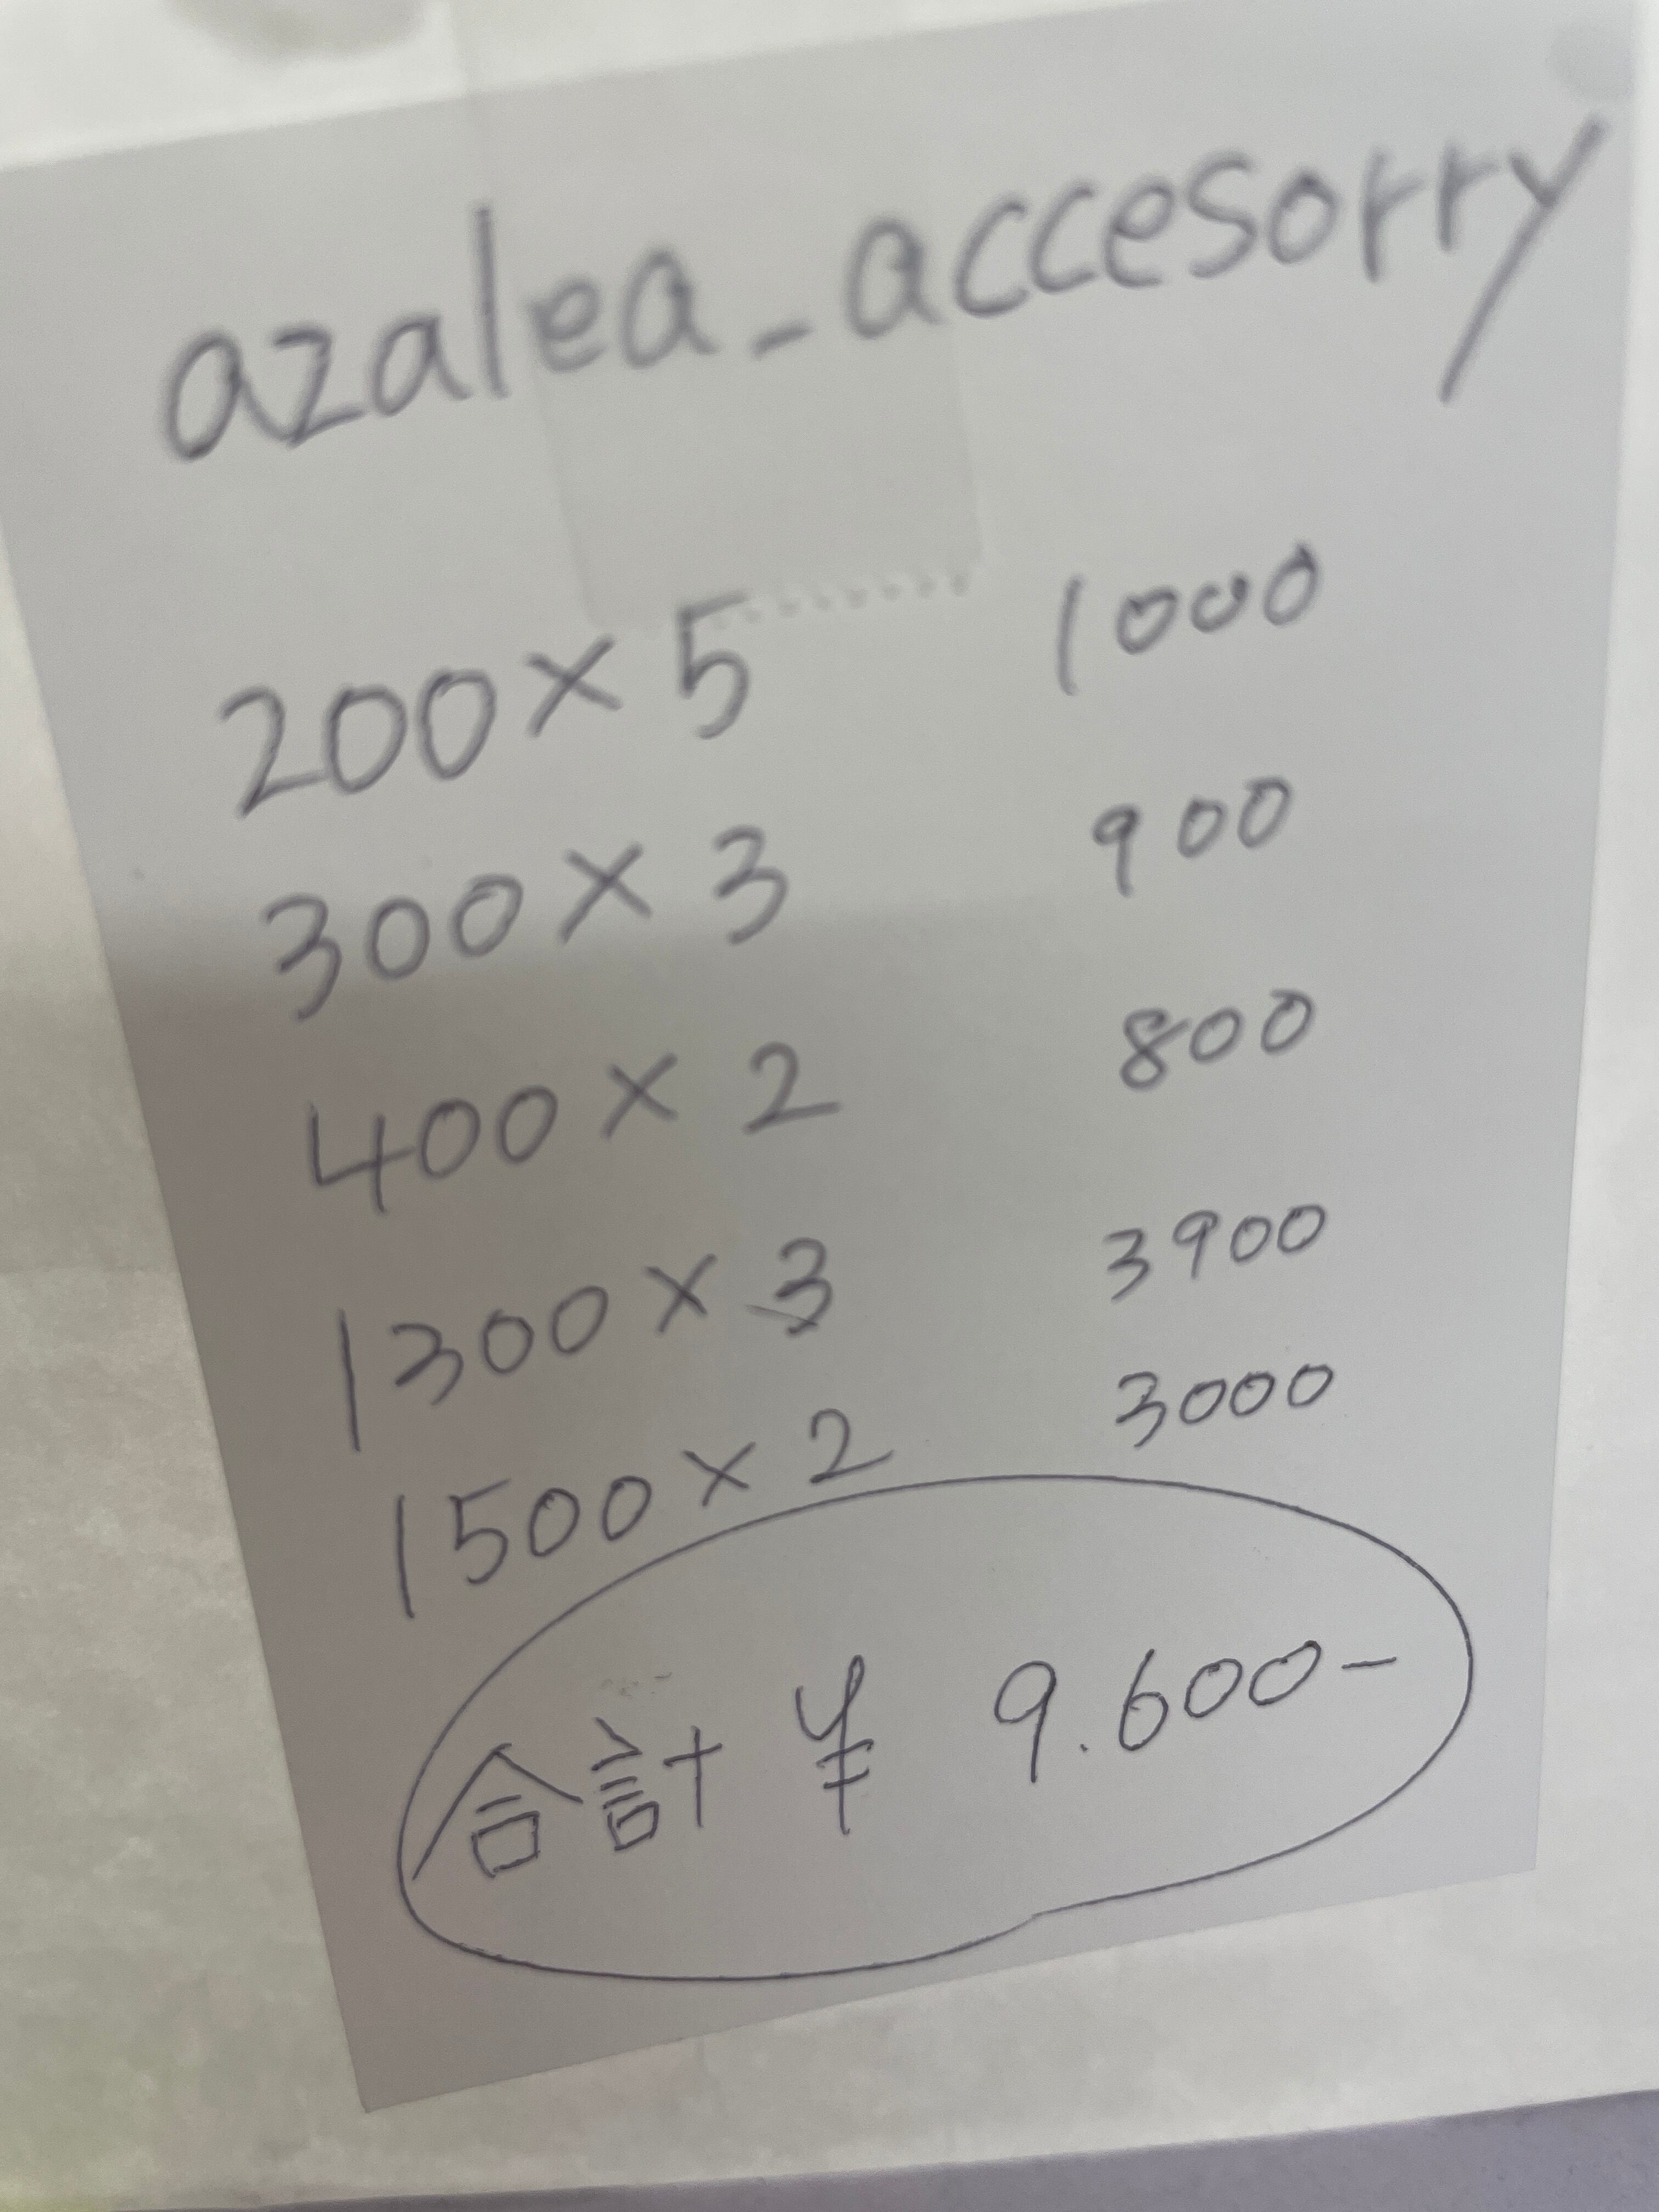 azalea_accesorry
200×5 1000
300×3 900
400×2 800
1300×3 3900
1500×2 3000
合計 ¥ 9.600-